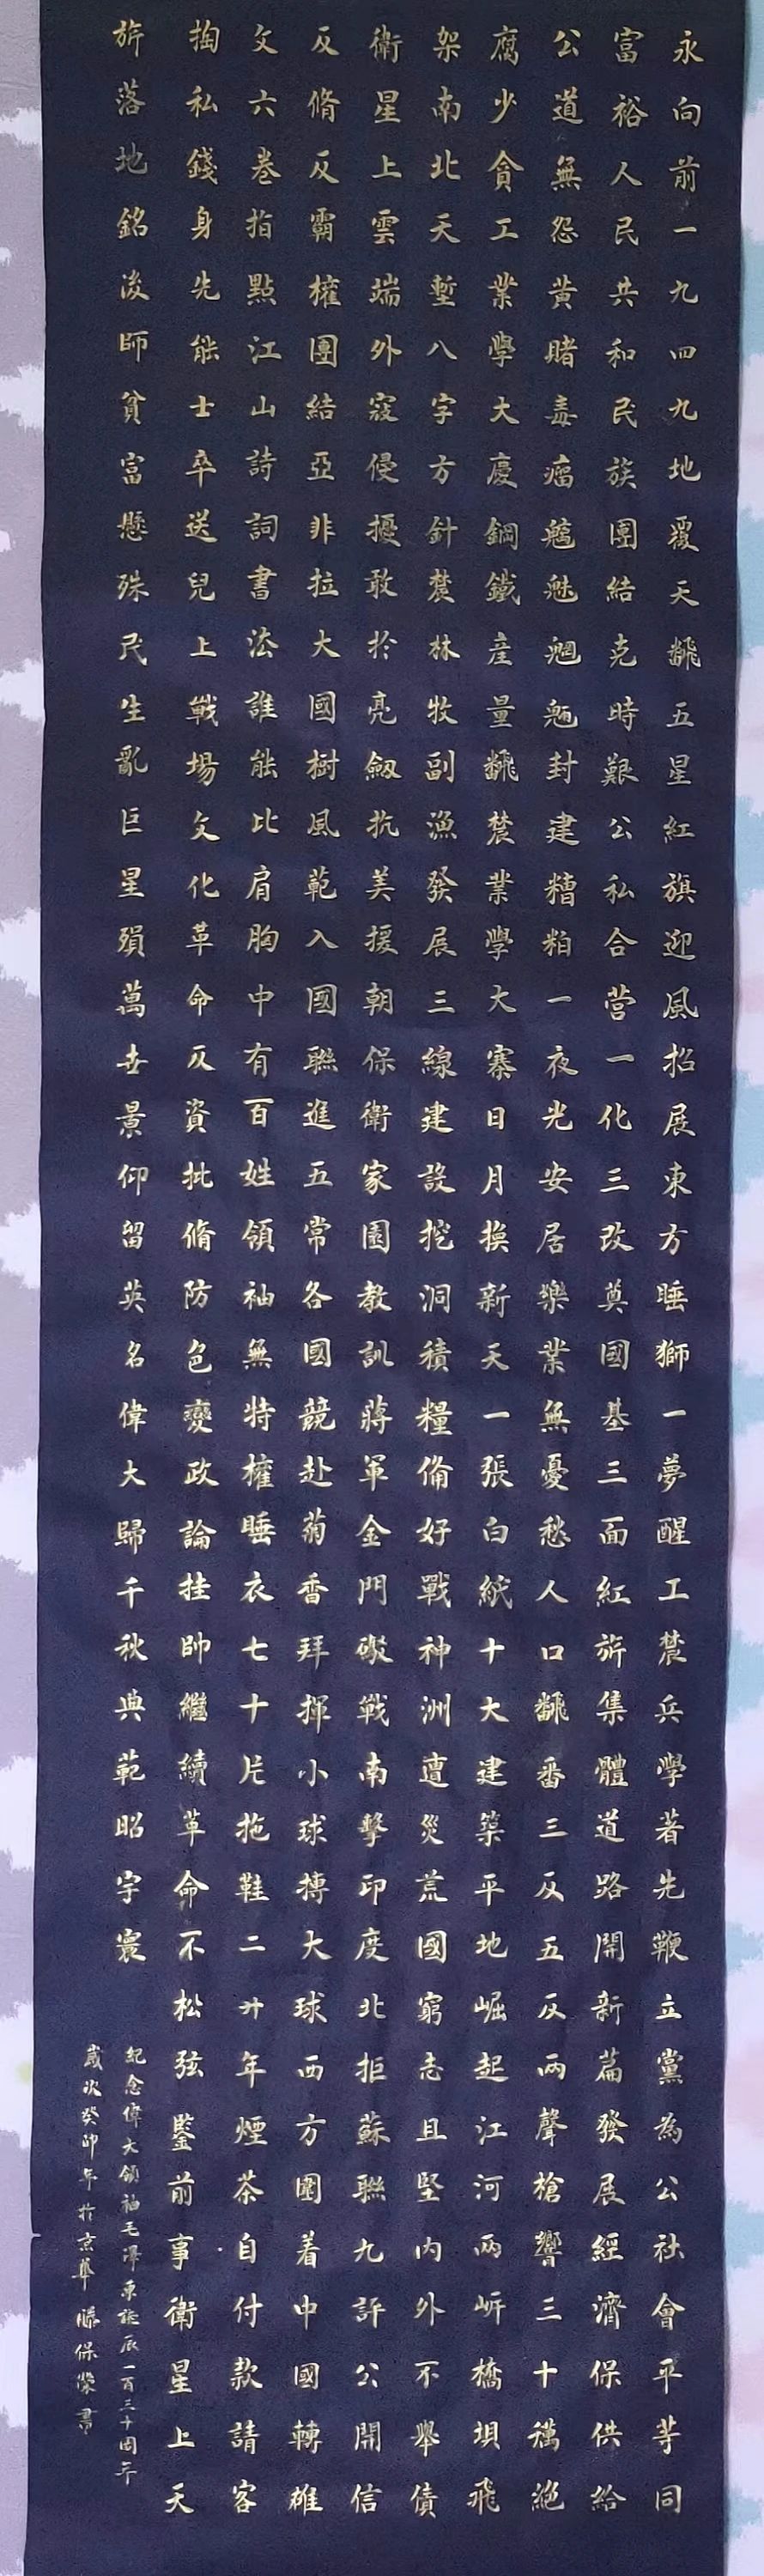 永向前一九四九地覆天飜五星紅旗迎風招展東方睡獅一夢醒工農兵學著先鞭立黨為公社會平等同
富裕人民共和民族團結克時艱公私合营一化三改奠國基三面紅旂集體道路開新篇發展經濟保供給
公道無怨黄賭毒瘤魑魅魍魎封建糟粕一夜光安居樂業無憂愁人口飜番三反五反兩聲槍響三十穐絶
腐少貪工業學大慶鋼鐵産量飜農業學大寨日月換新天一張白紙十大建築平地崛起江河兩岍橋垻飛
架南北天塹八字方針農林牧副漁發展三線建設挖洞積糧俻好戰神洲遭災荒國窮志且堅内外不舉債
衛星上雲端外寇侵擾敢扵亮劔抗美援朝保衛家園教訓蔣軍金門礟戰南擊印度北拒蘇聯九評公開信
反脩反霸權團結亞非拉大國樹風範入國聯進五常各國競赴菊香拜揮小球摶大球西方圍着中國轉雄
文六卷指點江山詩詞書法誰能比肩胸中有百姓領袖無特權睡衣七十片拖鞋二廾年煙茶自付款請客
掏私錢身先能士卒送兒上戰場文化革命反資批脩防色變政論挂帥繼續革命不松弦鑒前事衛星上天
旂落地銘後師貧富懸殊民生亂巨星殞萬世景仰留英名偉大歸千秋典範昭宇寰
紀念偉大領袖毛澤東誕辰一百三十周年
歲次癸卯年扵京華滕保榮書